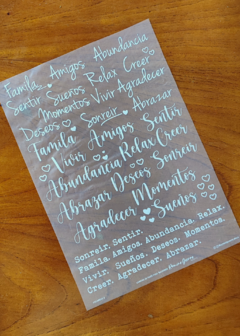 Familia Amigos Abundancia
Sentir Sueños Relax Creer
Momentos Vivir Agradecer
Deseos Sonreir Abrazar
Familia Amigos Sentir
Vivir Relax Creer
Abundancia Sonreir
Abrazar Deseos
Agradecer Momentos
Sueños
Sonreir. Sentir.
Familia. Amigos. Abundancia. Relax.
Vivir. Sueños. Deseos. Momentos.
Creer. Agradecer. Abrazar.